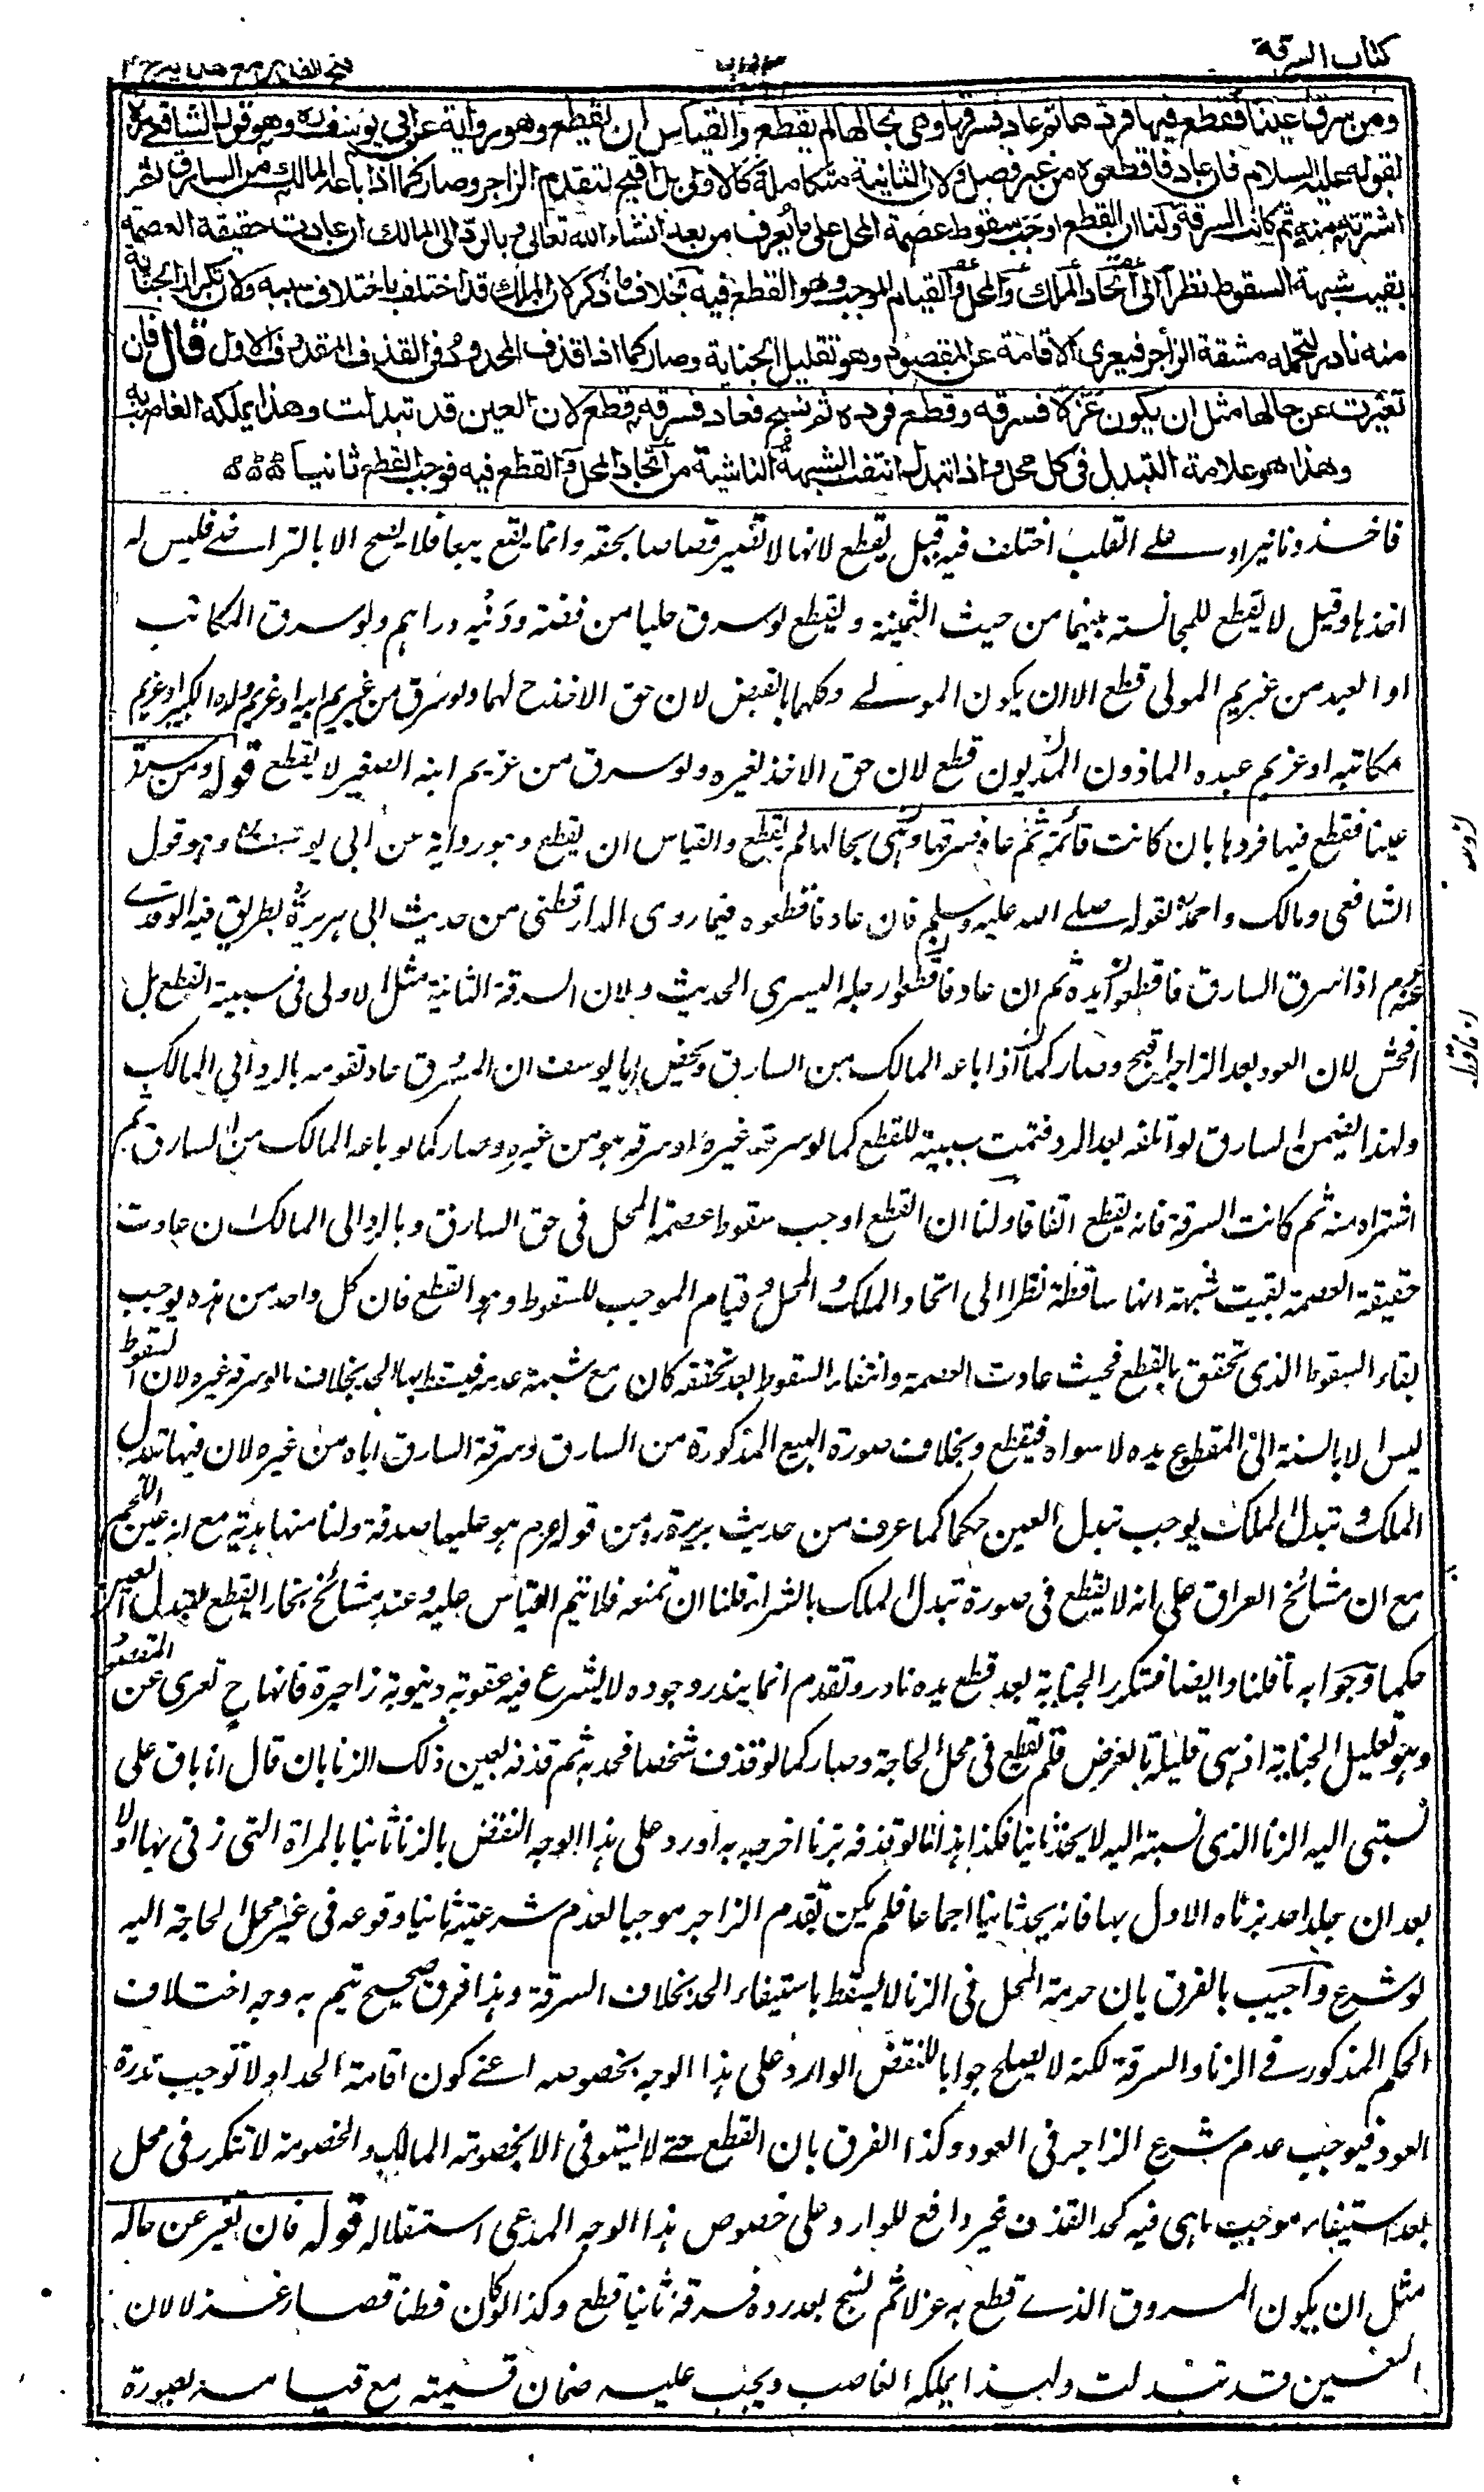 كتاب السرقة
فتح القدير مع هدايه ج ٢
ومن سرق عينا فقطع فيها فردها ثم عاد فسرقها وهي بحالها لم يقطع والقياس ان يقطع وهو رواية عن ابي يوسف ره وهو قول الشافعي ره
لقوله عليه السلام فان عاد فاقطعوه من غير فصل ولان الثانية متكاملة كالاولى بل اقبح لتقدم الزاجر وصار كما اذا باعه المالك من السارق ثم
اشتريه منه ثم كانت السرقة ولنا ان القطع اوجب سقوط عصمة المحل على ما يعرف من بعد انشاء الله تعالى وبالرد الى المالك ان عادت حقيقة العصمة
بقيت شبهة السقوط نظرا الى اتحاد الملك والمحل وقيام الموجب وهو القطع فيه بخلاف ما ذكر لان الملك قد اختلف باختلاف سببه ولان تكرار الجناية
منه نادر لتحمله مشقة الزاجر فيعرى الاقامة عن المقصود وهو تقليل الجناية وصار كما اذا قذف المحدود في القذف المقذوف الاول قال فان
تغيرت عن حالها مثل ان يكون غزلا فسرقه وقطع فرده ثم نسج فعاد فسرقه قطع لان العين قد تبدلت وهذا يملكه الغاصب به
وهذا هو علامة التبدل في كل محل واذا تبدل انتفت الشبهة الناشية من اتحاد المحل والقطع فيه فوجب القطع ثانيا
فاخذ دنانير او على القلب اختلف فيه قيل يقطع لانها لا تصير قصاصا بحقه وانما يقع بيعا فلا يصح الا بالتراضي فليس له
اخذها وقيل لا يقطع للمجانسة بينهما من حيث الثمنية ويقطع لو سرق حليا من فضة ودينه دراهم ولو سرق المكاتب
او العبد من غريم المولى قطع الا ان يكون المولى وكلهما بالقبض لان حق الاخذ ح لهما ولو سرق من غريم ابيه او غريم ولده الكبير او غريم
مكاتبه او غريم عبده الماذون المديون قطع لان حق الاخذ لغيره ولو سرق من غريم ابنه الصغير لا يقطع قوله ومن سرق
عينا فقطع فيها فردها بان كانت قائمة ثم عاد فسرقها وهي بحالها لم يقطع والقياس ان يقطع وهو رواية عن ابي يوسف وهو قول
الشافعي ومالك واحمد لقوله صلى الله عليه وسلم فان عاد فاقطعوه فيما روى الدارقطني من حديث ابي هريرة بطريق فيه الواقدي
عنه م اذا سرق السارق فاقطعوا يده ثم ان عاد فاقطعوا رجله اليسرى الحديث ولان السرقة الثانية مثل الاولى في سببية القطع بل
افحش لان العود بعد الزاجر اقبح وصار كما اذا باعه المالك من السارق ويخص ابا يوسف ان المسرق عاد تقومه بالرد الى المالك
ولهذا يضمن السارق لو اتلفه بعد الرد فتمت سببيته للقطع كما لو سرقه غيره او سرقه هو من غيره وصار كما لو باعه المالك من السارق ثم
اشتراه منه ثم كانت السرقة فانه يقطع اتفاقا ولنا ان القطع اوجب سقوط عصمة المحل في حق السارق وبالرد الى المالك ان عادت
حقيقة العصمة بقيت شبهة انها ساقطة نظرا الى اتحاد الملك والمحل وقيام الموجب للسقوط وهو القطع فان كل واحد من هذه يوجب
بقاء السقوط الذى تحقق بالقطع فحيث عادت العصمة وانتفاء السقوط بعد تحققه كان مع شبهة عدمه فيسقط بها الحد بخلاف ما لو سرقه غيره لان السقوط
ليس الا بالنسبة الى المقطوع يده لا سواه فيقطع وبخلاف صورة البيع المذكورة من السارق وسرقة السارق اياه من غيره لان فيها تبدل
الملك وتبدل الملك يوجب تبدل العين حكما كما عرف من حديث بريرة ره من قوله م هو عليها صدقة ولنا منها هدية مع انه عين اللحم
مع ان مشائخ العراق على انه لا يقطع في صورة تبدل الملك بالشراء فلنا ان نمنعه فلا يتم القياس عليه وعند مشائخ بخارا يقطع لتبدل العين
حكما وجوابه ما قلنا وايضا فتكرر الجناية بعد قطع يده نادر وتقدم انما يندر وجوده لا يشرع فيه عقوبة دنيوية زاجرة فانها ح تعرى عن المقصود
وهو تقليل الجناية اذ هى قليلة بالغرض فلم يقع في محل الحاجة وصار كما لو قذف شخصا فحد به ثم قذفه بعين ذلك الزنا بان قال انا باق على
نسبتي اليه الزنا الذى نسبته اليه لا يحد ثانيا فكذا هذا اما لو قذفه بزنا اخر حد به اورد على هذا الوجه النقض بالزنا ثانيا بالمراة التى زنى بها اولا
بعد ان جلد احد بزناه الاول بها فانه يحد ثانيا اجماعا فلم يكن تقدم الزاجر موجبا لعدم شرعيته ثانيا وقوعه في غير محل الحاجة اليه
لو شرع واجيب بالفرق بان حرمة المحل في الزنا لا يسقط باستيفاء الحد بخلاف السرقة وهذا فرق صحيح يتم به وجه اختلاف
الحكم المذكور في الزنا والسرقة لكنه لا يصلح جوابا للنقض الوارد على هذا الوجه بخصوصه اعني كون اقامة الحد اولا توجب ندرة
العود فيوجب عدم شرع الزاجر في العود وكذا الفرق بان القطع حتى لا يستوفى الا بخصومة المالك والخصومة لا تتكرر في محل
بعد استيفاء موجب ما هى فيه كحد القذف غير دافع للوارد على خصوص هذا الوجه المدعى استقلاله قوله فان تغير عن حاله
مثل ان يكون المسروق الذى قطع به غزلا ثم نسج بعد رده فسرقه ثانيا قطع وكذا لو كان قطنا فصار غزلا لان
العين قد تبدلت ولهذا يملكه الغاصب ويجب عليه ضمان قيمته مع قيامه بصورة